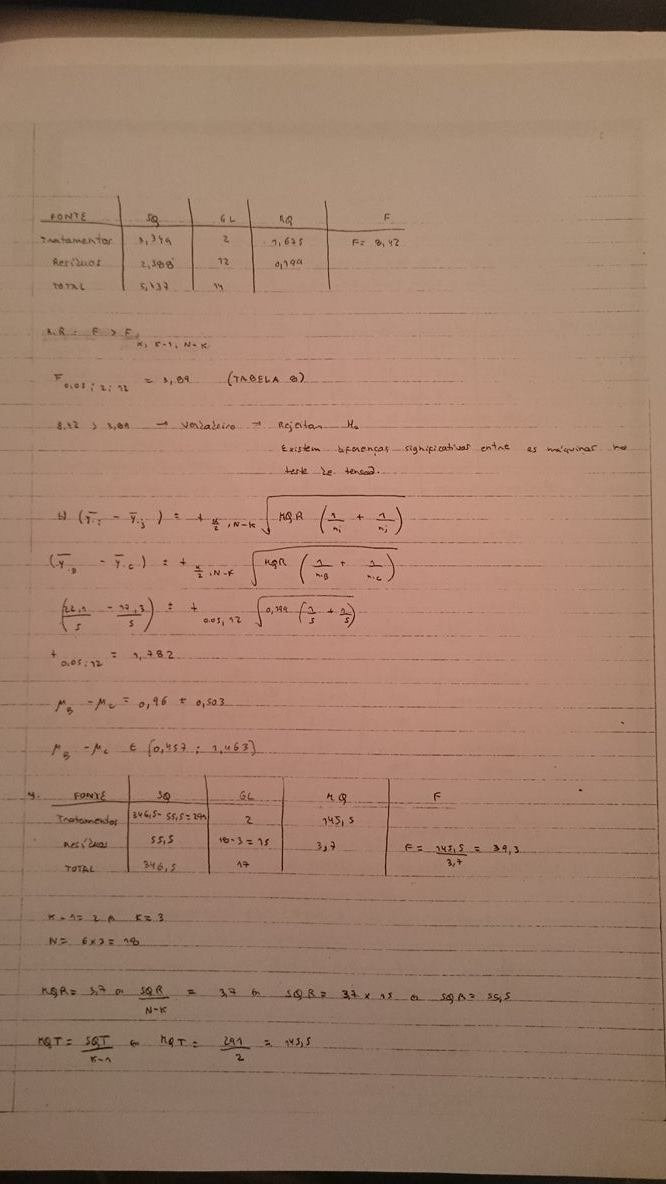 FONTE SQ GL MQ F
Tratamentos 3,349 2 1,675 F= 8,42
Resíduos 2,388 12 0,199
TOTAL 5,737 14
R.R = F > F α, K-1, N-K
F 0,05; 2; 12 = 3,89 (TABELA 8)
8,42 > 3,89 → Verdadeiro → Rejeitar H₀
Existem diferenças significativas entre as máquinas no
teste de tensão.
b) (ȳ.i - ȳ.j) ± t α/2, N-K √MQR (1/ni + 1/nj)
(ȳ.B - ȳ.C) ± t α/2, N-K √MQR (1/nB + 1/nC)
(22,1/5 - 17,3/5) ± t 0.05, 12 √0,199 (1/5 + 1/5)
t 0,05; 12 = 1,782
μB - μC = 0,96 ± 0,503
μB - μC ∈ [0,457 ; 1,463]
4. FONTE SQ GL MQ F
Tratamentos 346,5- 55,5=291 2 145,5
Resíduos 55,5 18-3 = 15 3,7 F= 145,5/3,7 = 39,3
TOTAL 346,5 17
K-1= 2 K= 3
N= 6×3 = 18
MQR= 3,7 SQR/N-K = 3,7 SQR= 3,7 × 15 SQR= 55,5
MQT = SQT/K-1 MQT = 291/2 = 145,5